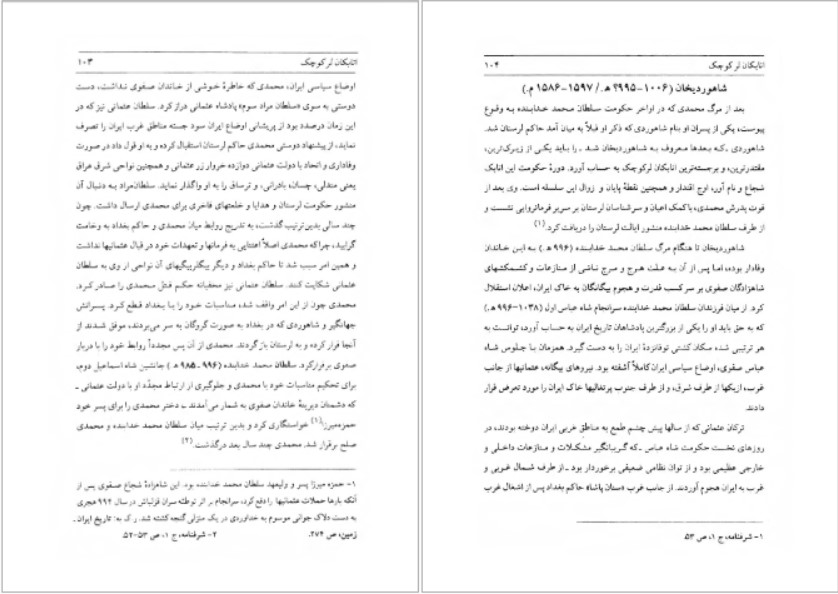 اتابکان لر کوچک ۱۰۳
اوضاع سیاسی ایران، محمدی که خاطرهٔ خوشی از خاندان صفوی نداشت، دست
دوستی به سوی «سلطان مراد سوم» پادشاه عثمانی دراز کرد. سلطان عثمانی نیز که در
این زمان درصدد بود از پریشانی اوضاع ایران سود جسته مناطق غرب ایران را تصرف
نماید، از پیشنهاد دوستی محمدی حاکم لرستان استقبال کرده و به او قول داد در صورت
وفاداری و اتحاد با دولت عثمانی دوازده خروار زر عثمانی و همچنین نواحی شرق عراق
یعنی مندلی، جسان، بادرائی، و ترساق را به او واگذار نماید. سلطان مراد به دنبال آن
منشور حکومت لرستان و هدایا و خلعتهای فاخری برای محمدی ارسال داشت. چون
چند سالی بدین ترتیب گذشت، به تدریج روابط میان محمدی و حاکم بغداد به وخامت
گرایید، چراکه محمدی اصلاً اعتنایی به فرمانها و تعهدات خود در قبال عثمانیها نداشت
و همین امر سبب شد تا حاکم بغداد و دیگر بیگلربیگیهای آن نواحی از وی به سلطان
عثمانی شکایت کنند. سلطان عثمانی نیز مخفیانه حکم قتل محمدی را صادر کرد.
محمدی چون از این امر واقف شده مناسبات خود را با بغداد قطع کرد. پسرانش
جهانگیر و شاهوردی که در بغداد به صورت گروگان به سر می‌بردند، موفق شدند از
آنجا فرار کرده و به لرستان بازگردند. محمدی از آن پس مجدداً روابط خود را با دربار
صفوی برقرار کرد. سلطان محمد خدابنده (۹۹۶ ـ ۹۸۵ ه‍.) جانشین شاه اسماعیل دوم،
برای تحکیم مناسبات خود با محمدی و جلوگیری از ارتباط مجدّد او با دولت عثمانی ـ
که دشمنان دیرینهٔ خاندان صفوی به شمار می‌آمدند ـ دختر محمدی را برای پسر خود
حمزه‌میرزا(۱) خواستگاری کرد و بدین ترتیب میان سلطان محمد خدابنده و محمدی
صلح برقرار شد. محمدی چند سال بعد درگذشت.(۲)
۱- حمزه میرزا پسر و ولیعهد سلطان محمد خدابنده بود. این شاهزادهٔ شجاع صفوی پس از
آنکه بارها حملات عثمانیها را دفع کرد، سرانجام بر اثر توطئه سران قزلباش در سال ۹۹۴ هجری
به دست دلاک جوانی موسوم به خداوردی در یک منزلی گنجه کشته شد. ر.ک به: تاریخ ایران ـ
زمین، ص ۲۷۴. ۲- شرفنامه، ج ۱، ص ۵۳-۵۲.
اتابکان لر کوچک ۱۰۴
شاهوردیخان (۱۰۰۶-۹۹۵؟ ه‍. / ۱۵۹۷-۱۵۸۶ م.)
بعد از مرگ محمدی که در اواخر حکومت سلطان محمد خدابنده به وقوع
پیوست، یکی از پسران او بنام شاهوردی که ذکر او قبلاً به میان آمد حاکم لرستان شد.
شاهوردی ـ که بعدها معروف به شاهوردیخان شد ـ را باید یکی از زیرک‌ترین،
مقتدرترین، و برجسته‌ترین اتابکان لرکوچک به حساب آورد. دورهٔ حکومت این اتابک
شجاع و نام آور، اوج اقتدار و همچنین نقطهٔ پایان و زوال این سلسله است. وی بعد از
فوت پدرش محمدی، با کمک اعیان و سرشناسان لرستان بر سریر فرمانروایی نشست و
از طرف سلطان محمد خدابنده منشور ایالت لرستان را دریافت کرد.(۱)
شاهوردیخان تا هنگام مرگ سلطان محمد خدابنده (۹۹۶ ه‍.) به این خاندان
وفادار بوده، اما پس از آن به علت هرج و مرج ناشی از منازعات و کشمکشهای
شاهزادگان صفوی بر سر کسب قدرت و هجوم بیگانگان به خاک ایران، اعلان استقلال
کرد. از میان فرزندان سلطان محمد خدابنده سرانجام شاه عباس اول (۱۰۳۸-۹۹۶ ه‍.)
که به حق باید او را یکی از بزرگترین پادشاهان تاریخ ایران به حساب آورد، توانست به
هر ترتیبی شده سکان کشتی توفانزدهٔ ایران را به دست گیرد. همزمان با جلوس شاه
عباس صفوی، اوضاع سیاسی ایران کاملاً آشفته بود. نیروهای بیگانه، عثمانیها از جانب
غرب، ازبکها از طرف شرق، و از طرف جنوب پرتغالیها خاک ایران را مورد تعرض قرار
دادند.
ترکان عثمانی که از سالها پیش چشم طمع به مناطق غربی ایران دوخته بودند، در
روزهای نخست حکومت شاه عباس ـ که گریبانگیر مشکلات و منازعات داخلی و
خارجی عظیمی بود و از توان نظامی ضعیفی برخوردار بود ـ از طرف شمال غربی و
غرب به ایران هجوم آوردند. از جانب غرب «سنان پاشا» حاکم بغداد پس از اشغال غرب
۱- شرفنامه، ج ۱، ص ۵۳